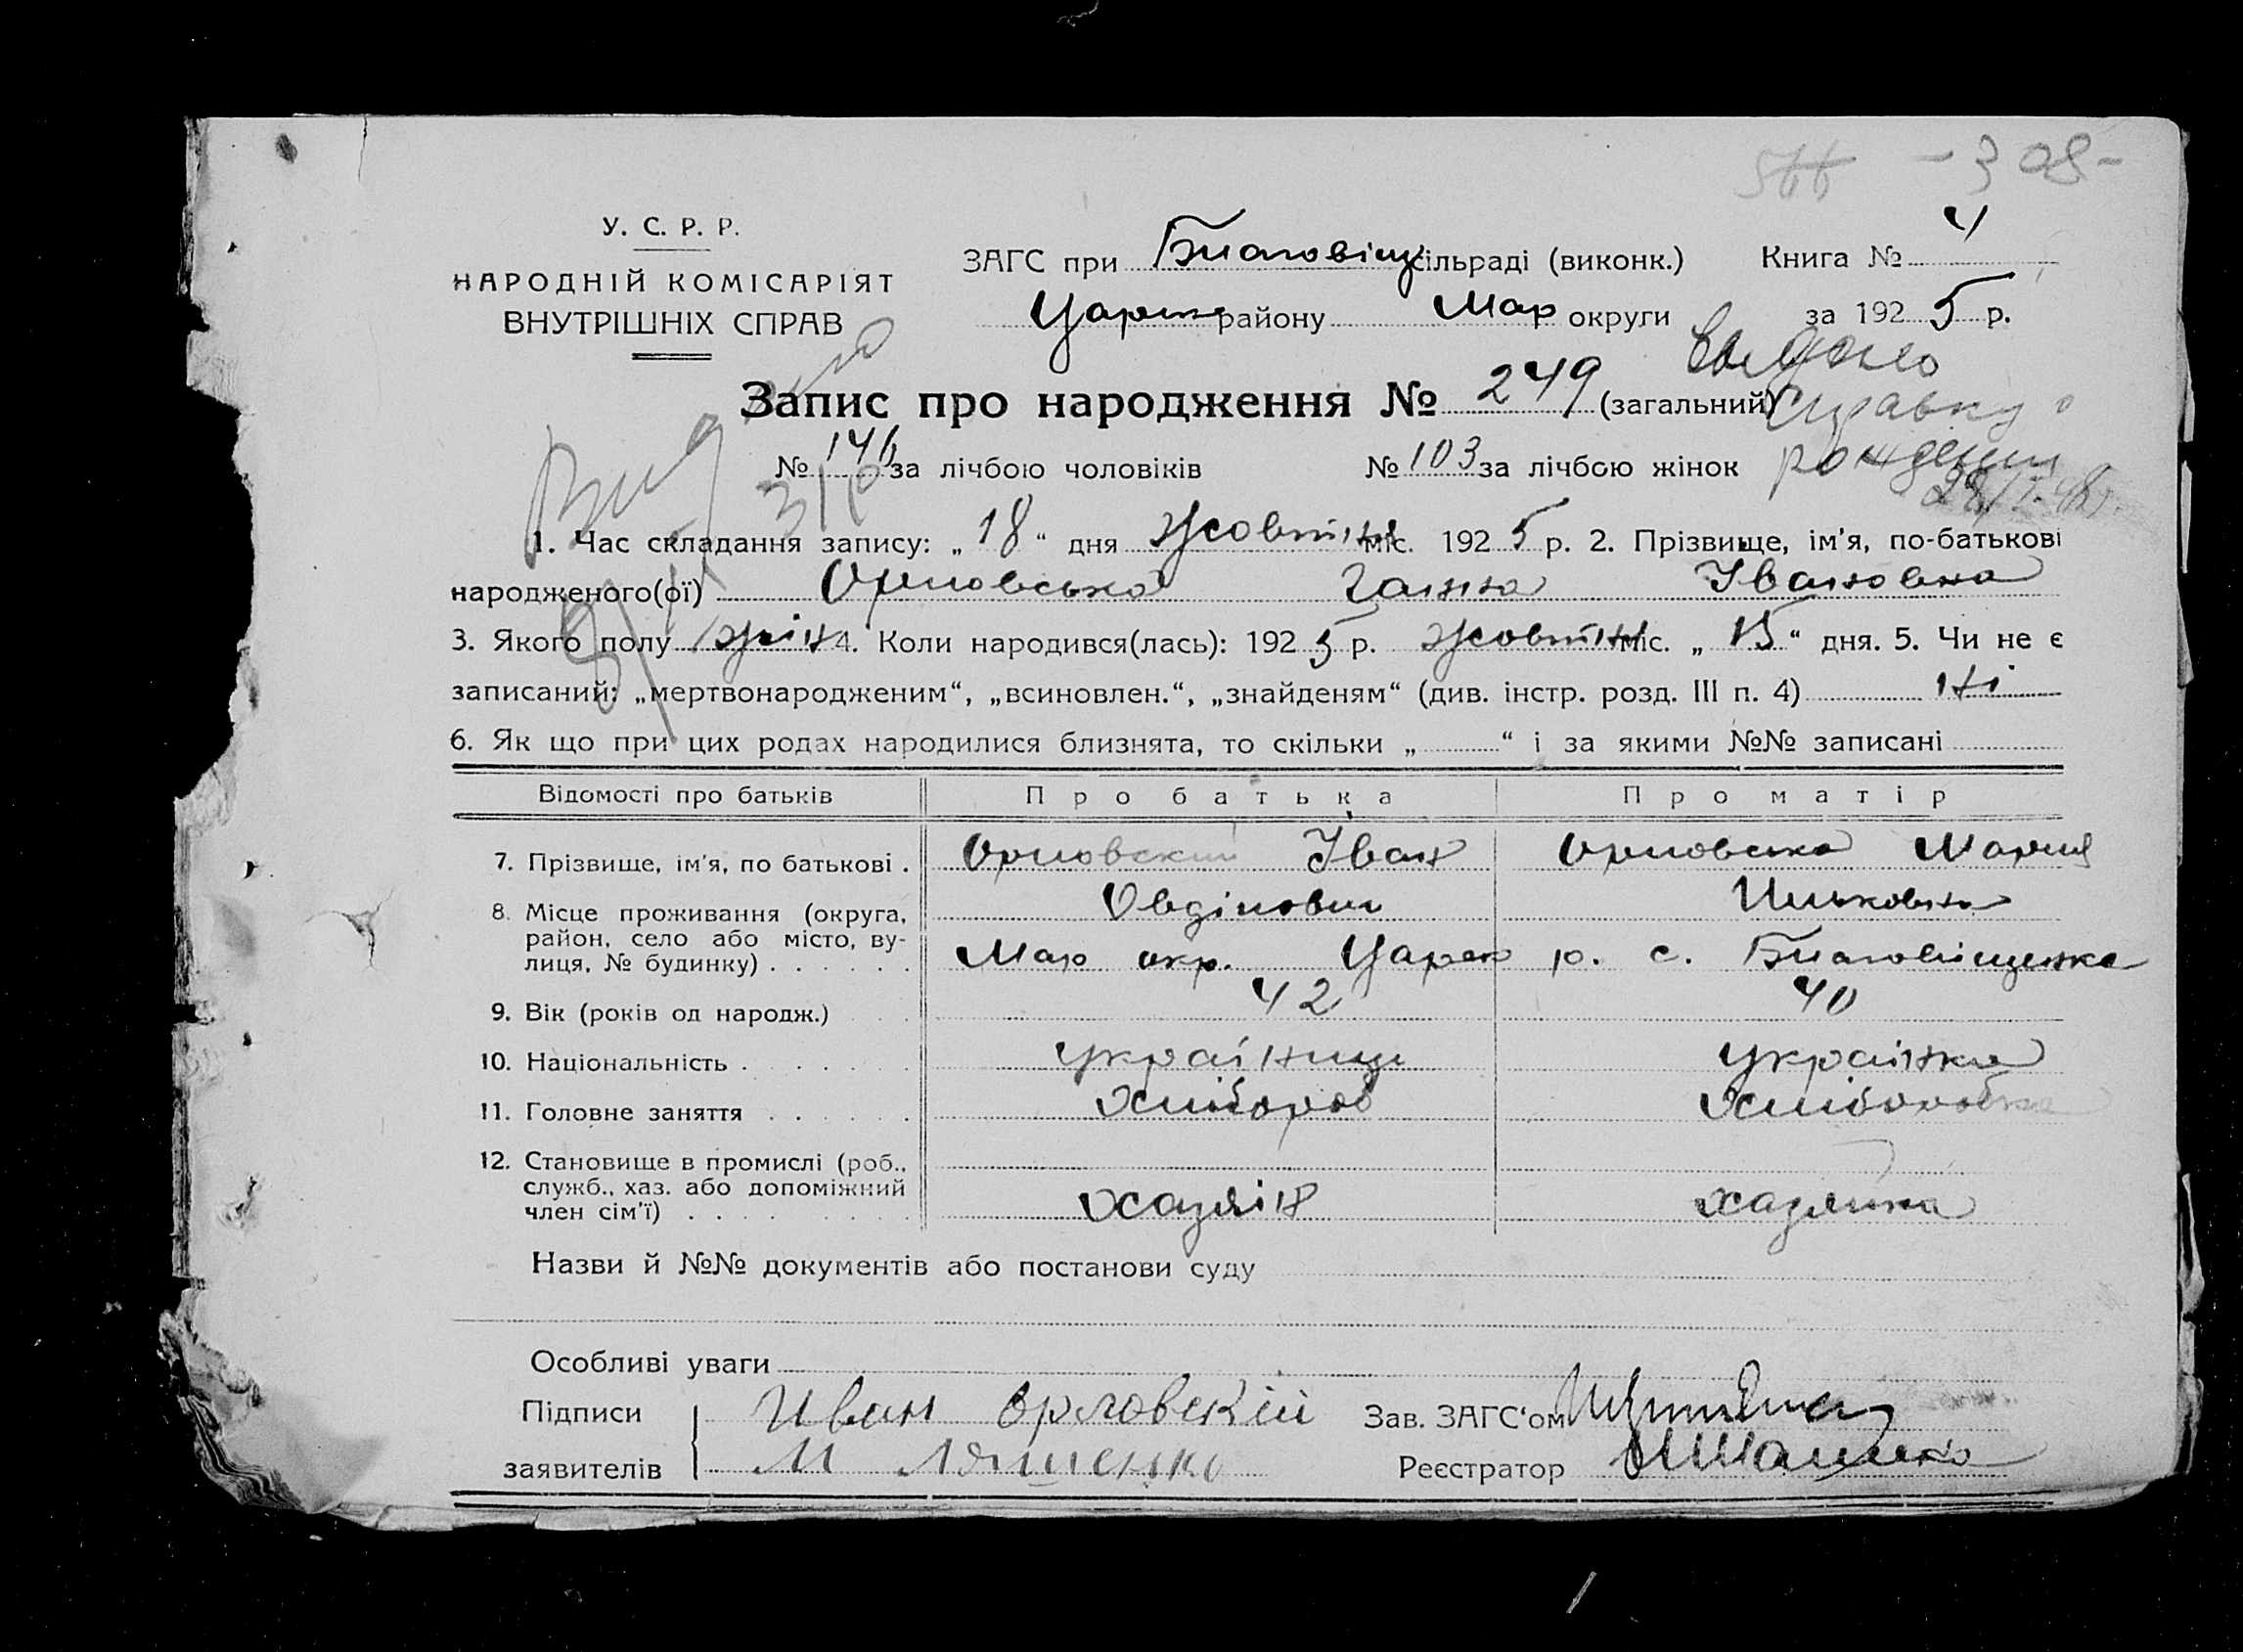 566 - 308 -
У. С. Р. Р.
НАРОДНІЙ КОМІСАРІЯТ
ВНУТРІШНІХ СПРАВ
ЗАГС при Благовіщ сільраді (виконк.) Книга № 4
Царек району Мар округи за 1925 р.
Выдано
справку о
рождении
Запис про народження № 249 (загальний)
№ 146 за лічбою чоловіків № 103 за лічбою жінок
1. Час складання запису: „18“ дня Жовтня міс. 1925 р. 2. Прізвище, ім’я, по-батькові
народженого(ої) Орловська Ганна Івановна
3. Якого полу жін 4. Коли народився(лась): 1925 р. Жовтня міс. „15“ дня. 5. Чи не є
записаний: „мертвонародженим“, „всиновлен.“, „знайденям“ (див. інстр. розд. III п. 4) ні
6. Як що при цих родах народилися близнята, то скільки „ “ і за якими №№ записані
Відомості про батьків Про батька Про матір
7. Прізвище, ім’я, по батькові . Орловский Іван Орловська Мария
Овдійович Ильковна
8. Місце проживання (округа,
район, село або місто, ву-
лиця, № будинку) . . . . . . Мар окр. Царек р. с. Благовіщенка
9. Вік (років од народж.) 42 40
10. Національність . . . . . . . українець українка
11. Головне заняття . . . . . . Хлібороб Хліборобка
12. Становище в промислі (роб.,
служб., хаз. або допоміжний
член сім’ї) . . . . . . . . . Хазяїн хазяйка
Назви й №№ документів або постанови суду
Особливі уваги
Підписи Иван Орловскій Зав. ЗАГС‘ом
заявителів М Ляшенко Реєстратор